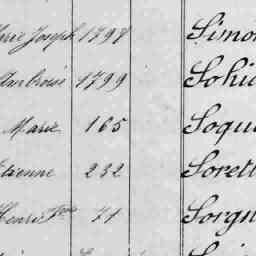 Joseph 1798 Simo
Ambroise 1799 Sohi
Marie 165 Soqu
Etienne 232 Sorett
Henri 71 Sorgn